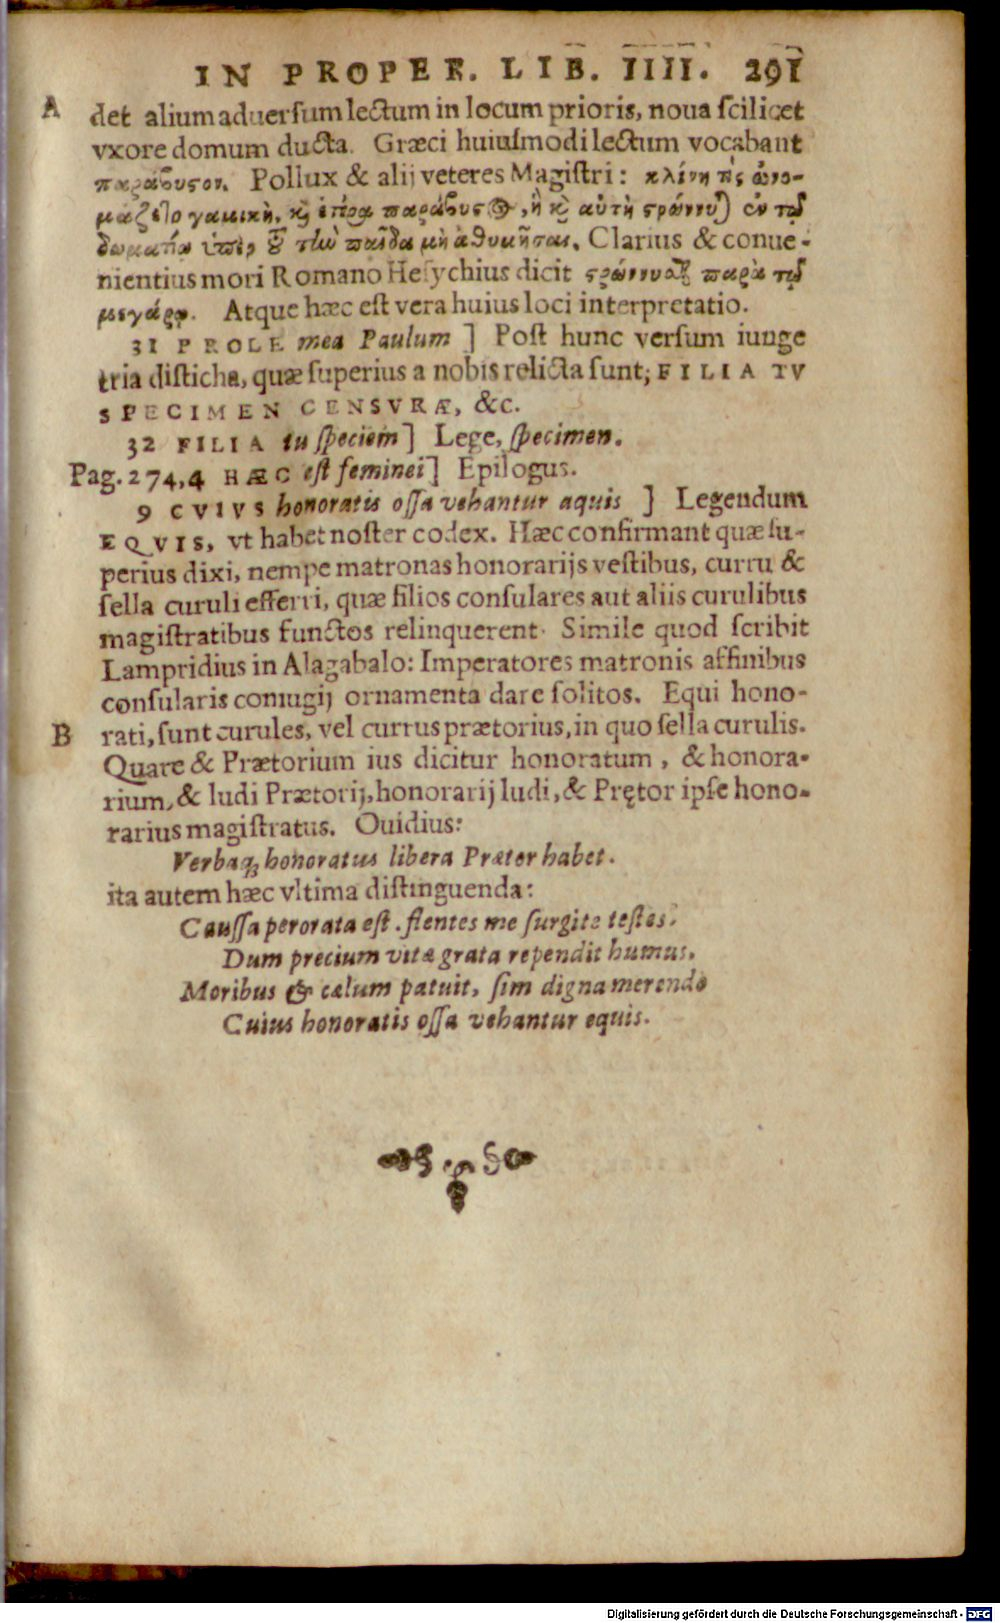 IN PROPER. LIB. IIII. 291
A det alium aduersum lectum in locum prioris, noua scilicet
vxore domum ducta. Græci huiusmodi lectum vocabant
παράβυστον. Pollux & alij veteres Magistri: κλίνη τὶς ὠνο-
μάζετο γαμικὴ, καὶ ἑτέρα παράβυστος, ἡ καὶ αὐτὴ στρώννυται ἐν τῷ
δωματίῳ ὑπὲρ τοῦ τὴν παῖδα μὴ ἀθυμῆσαι. Clarius & conue-
nientius mori Romano Hesychius dicit στρώννυσθαι παρὰ τῷ
μεγάρῳ. Atque hæc est vera huius loci interpretatio.
31 PROLE mea Paulum ] Post hunc versum iunge
tria disticha, quæ superius a nobis relicta sunt; FILIA TV
SPECIMEN CENSVRÆ, &c.
32 FILIA tu speciem] Lege, specimen.
Pag. 274,4 HÆC est feminei] Epilogus.
9 CVIVS honoratis ossa vehantur aquis ] Legendum
EQVIS, vt habet noster codex. Hæc confirmant quæ su-
perius dixi, nempe matronas honorarijs vestibus, curru &
sella curuli efferri, quæ filios consulares aut aliis curulibus
magistratibus functos relinquerent. Simile quod scribit
Lampridius in Alagabalo: Imperatores matronis affinibus
consularis coniugij ornamenta dare solitos. Equi hono-
B rati, sunt curules, vel currus prætorius, in quo sella curulis.
Quare & Prætorium ius dicitur honoratum, & honora-
rium, & ludi Prætorij, honorarij ludi, & Prętor ipse hono-
rarius magistratus. Ouidius:
Verbaq; honoratus libera Prætor habet.
ita autem hæc vltima distinguenda:
Caussa perorata est. flentes me surgite testes:
Dum precium vitæ grata rependit humus.
Moribus & cælum patuit, sim digna merendo
Cuius honoratis ossa vehantur equis.
Digitalisierung gefördert durch die Deutsche Forschungsgemeinschaft - DFG